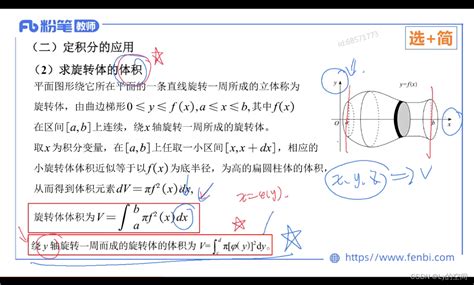 粉笔 教师
id:68571273
选+简
（二）定积分的应用
（2）求旋转体的体积
平面图形绕它所在平面的一条直线旋转一周所成的立体称为
旋转体，由曲边梯形0≤y≤f(x),a≤x≤b,其中f(x)
在区间[a,b]上连续，绕x轴旋转一周所成的旋转体。
取x为积分变量，在[a,b]上任取一小区间[x,x+dx]，相应的
小旋转体体积近似等于以f(x)为底半径，为高的扁圆柱体的体积，
从而得到体积元素dV=πf²(x)dx,
旋转体体积为V=∫_a^b πf²(x)dx
绕y轴旋转一周而成的旋转体的体积为 V=∫_c^d π[φ(y)]²dy。
x=φ(y).
y
y=f(x)
x
x、y、z ⇒ V
https://www.fenbi.com